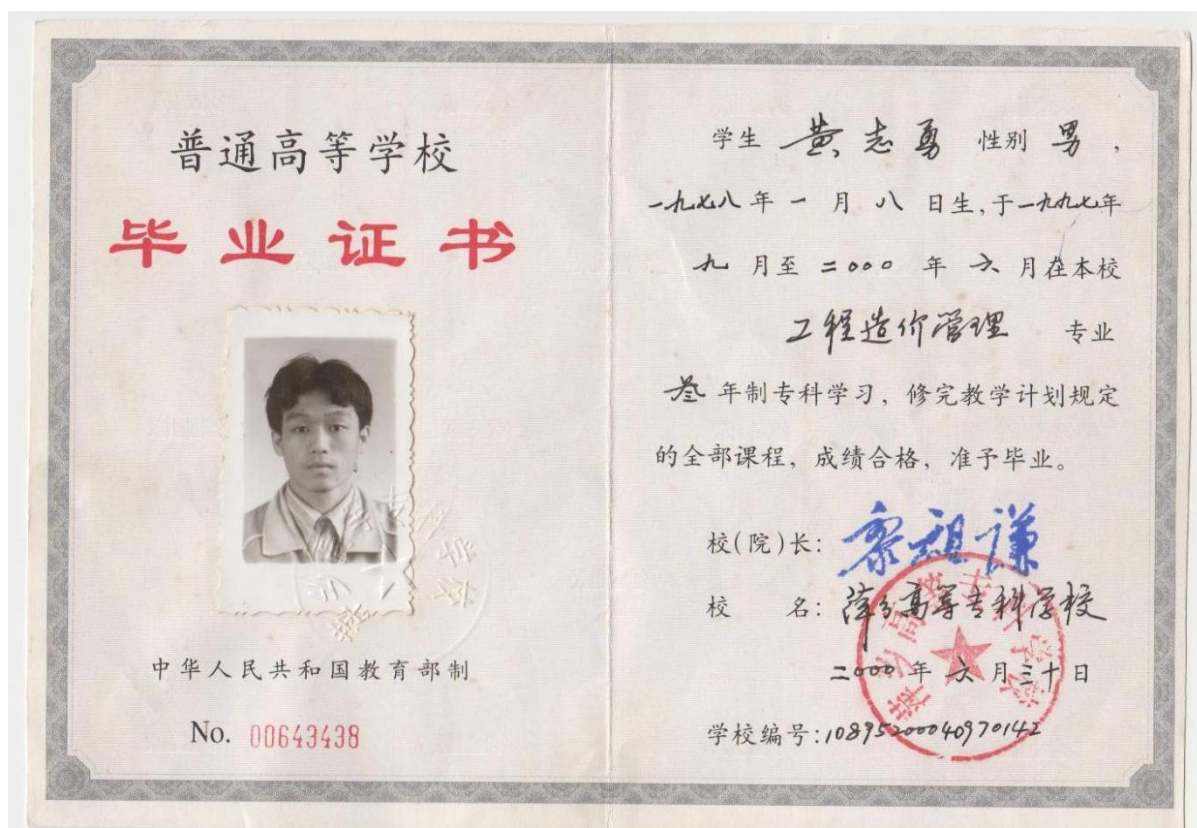 普通高等学校
毕业证书
中华人民共和国教育部制
No. 00643438
学生 黄志勇 性别 男,
一九七八年一月八日生,于一九九七年
九月至二000年六月在本校
工程造价管理 专业
叁年制专科学习,修完教学计划规定
的全部课程,成绩合格,准予毕业。
校(院)长:
校 名:萍乡高等专科学校
二000年六月三十日
学校编号:10895200040970142
萍乡高等专科学校